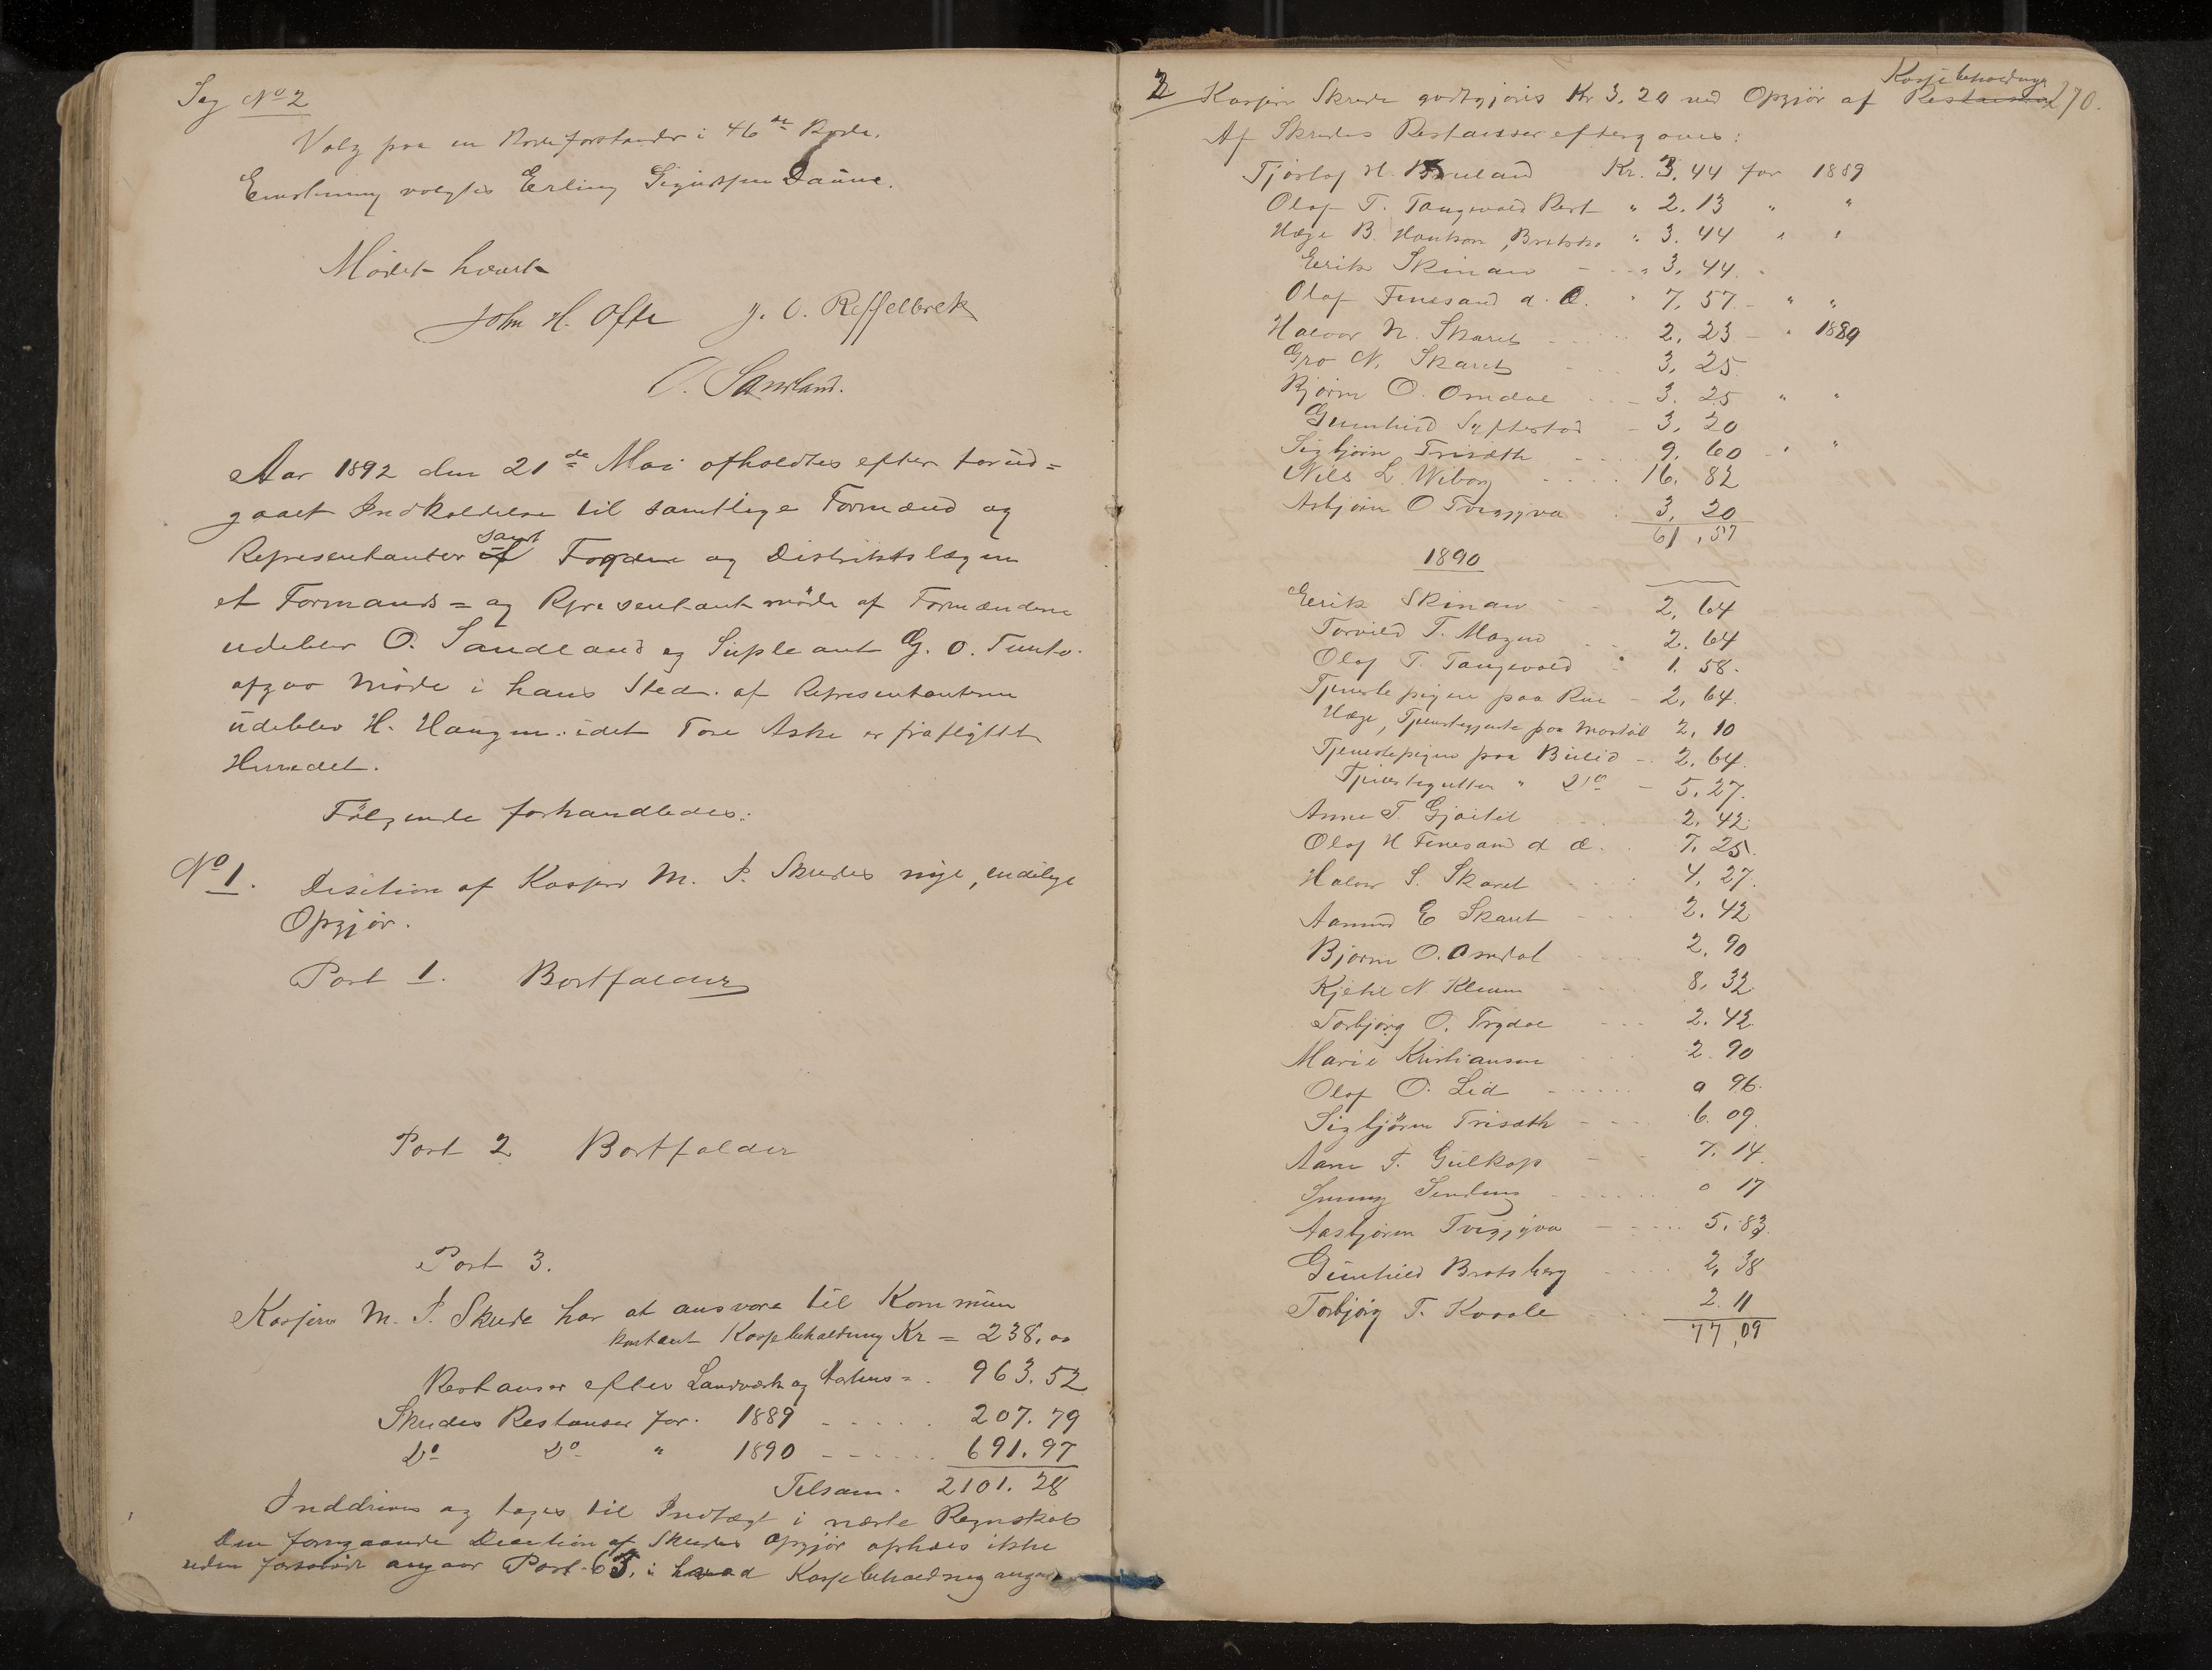 Sag No 2
Valg paa en Rodeforstander i 46de Rode.
Enstemmig valgtes Erling Sigurdsen Daune.
Mødet hævet
John H. Ofte J. O. Reffelbrek
O. Sandland.
Aar 1892 den 21de Mai afholdtes efter forud=
gaaet Indkaldelse til samtlige Formænd og
Representanter samt Fogden og Distriktslægen
et Formands= og Representantmøde af Formændene
udeblev O. Sandland og Supleant G. O. Tunto.
afgao Møde i hans Sted. af Representanterne
udeblev H. Haugen. idet Tore Aske er fraflyttet
Herredet.
Følgende forhandledes:
No 1. Desition af Kasserer M. P. Skredes nye, endelige
Opgjør.
Post 1. Bortfalder
Post 2 Bortfalder
Post 3.
Kasserer M. P. Skrede har at ansvare til Kommun
kontant Kassebeholdning Kr = 238.00
Restanser efter Landværk og =. 963.52
Skredes Restanser for. 1889 207.79
Do Do " 1890 691.97
Tilsam. 2101.28
Inddrives og tages til Indtægt i næste Regnskab
Den foregaaende Desition af Skredes Opgjør ophæves ikke
uden forsaavidt angaar Post 63, i hvad Kassebeholdning angaar
2 Kasserer Skrede godtgjøres Kr 3.20 ved Opgjør af Kassebeholdninger 270.
Af Skredes Restanser eftergaves:
Tjøstof H. Bruland Kr. 3.44 for 1889
Olaf T. Tangevald Rest " 2.13 " "
Hæge B. Haukom, " 3.44 " "
Eerik Skinaw " 3.44. "
Olaf Finesand d. Æ. " 7.57 " "
Halvor N. Skaret 2.23 " 1889
Gro N. Skaret 3.25
Bjørn O. Omdal 3.25 " "
Gunhild Syftestad 3.20
Sigbjørn Trisæth 9.60 " "
Nils L. Wiborg 16.82
Asbjørn O Tveggva 3.20
61,57
1890
Eerik Skinaw 2.64
Torvild T. Mogen 2.64
Olaf T. Tangevald 1.58.
Tjenestepigen paa Rue 2.64.
Hæge, Tjenestegjente paa 2.10
Tjenestepigen paa Bulid 2.64.
Tjenestegutten " Do 5.27.
Anne T. Gjøitil 2.42
Olaf H Finesand d Æ. 7.25.
Halvor S. Skaret 4.27.
Aamund E Skaret 2.42
Bjørn O. Omdal 2.90
Kjetil N Kleiva 8.32
Torbjørg O. Trydal 2.42
Marie Kristiansen 2.90
Olaf O. Lid 0 96.
Sigbjørn Trisæth 6.09.
Aane T. Gulkop 7.14.
0 17
Aasbjørn Tveggva 5.83
Gunhild Bratsberg 2.38
Torbjørg T. Kvaale 2.11
77,09